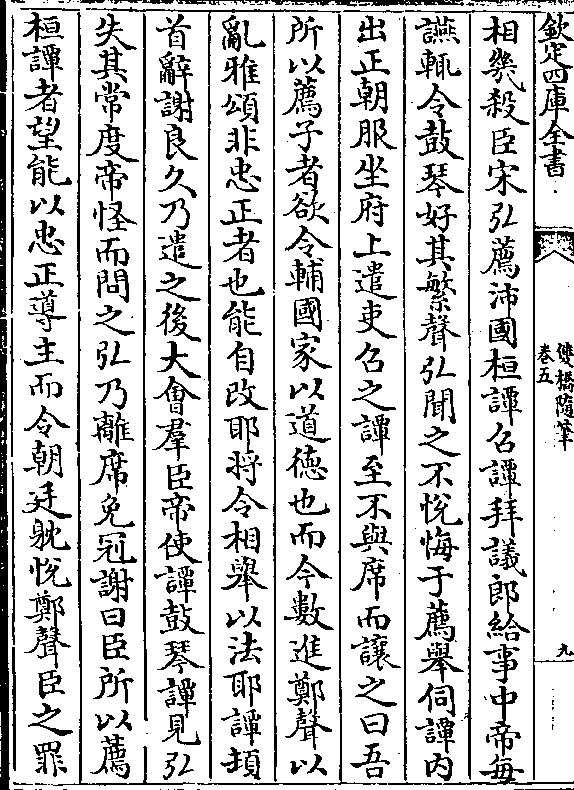 欽定四庫全書
雙橋隨筆
卷五
九
相幾殺臣宋弘薦沛國桓譚召譚拜議郎給事中帝每
讌輒令鼓琴好其繁聲弘聞之不悅悔于薦舉伺譚内
出正朝服坐府上遣吏召之譚至不與席而讓之曰吾
所以薦子者欲令輔國家以道德也而今數進鄭聲以
亂雅頌非忠正者也能自改耶將令相舉以法耶譚頓
首辭謝良久乃遣之後大會羣臣帝使譚鼓琴譚見弘
失其常度帝怪而問之弘乃離席免冠謝曰臣所以薦
桓譚者望能以忠正導主而令朝廷躭悅鄭聲臣之罪